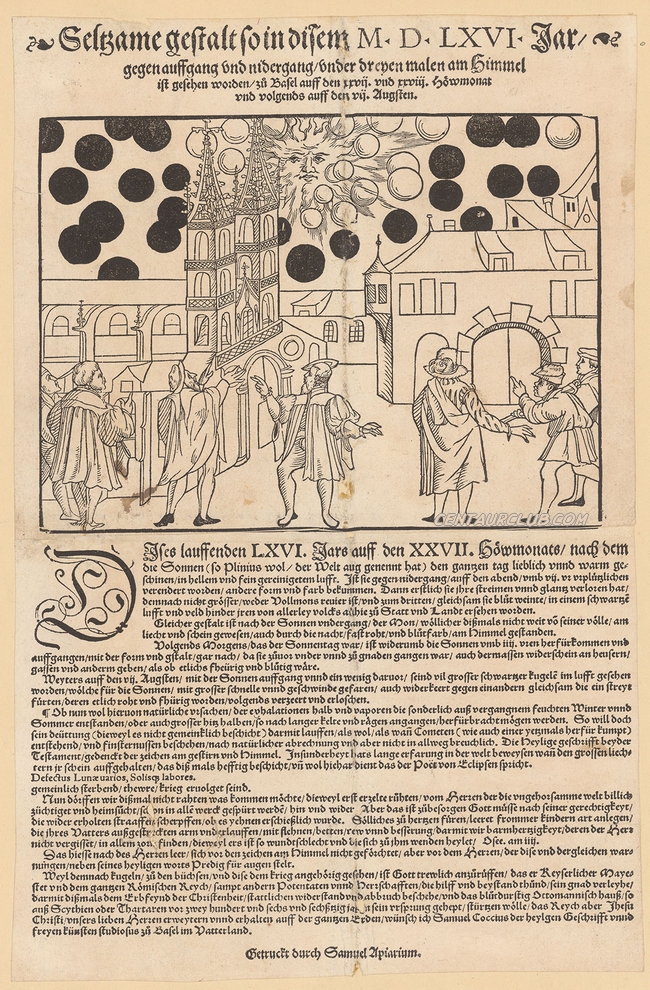 Seltzame gestalt so in disem M·D·LXVI· Jar/
gegen auffgang vnd nidergang/vnder dreyen malen am Himmel
ist gesehen worden/zů Basel auff den xxvij. vnd xxviij. Höwmonat
vnd volgends auff den vij. Augsten.
CENTAURCLUB.COM
DJses lauffenden LXVI. Jars auff den XXVII. Höwmonats/ nach dem
die Sonnen (so Plinius wol/ der Welt aug genennt hat) den gantzen tag lieblich vnnd warm ge-
schinen/in hellem vnd fein gereinigetem lufft. Ist sie gegen nidergang/auff den abend/vmb vij. vr
verendert worden/ andere form vnd farb bekummen. Dann erstlich sie jhre streimen vnnd glantz verloren hat/
demnach nicht grösser/weder Vollmons/vnd zum dritten/gleichsam sie blůt weinte/in einem schwartze
lufft vnd
Gleicher gestalt ist nach der Sonnen vndergang/der Mon/wölicher dißmals nicht weit vō seiner völle/am
liecht vnd schein gewesen/auch durch die nacht/fast roht/vnd blůtfarb/am Himmel gestanden.
Volgends Morgens/das der Sonnentag war/ist widerumb die Sonnen vmb iiij. vren herfürkommen vnd
auffgangen/mit der form vnd gstalt/gar nach/ da sie zůuor vnder vnnd zů gnaden gangen war/ auch dermassen widerschein an heusern/
gassen vnd anderm geben/als ob etlichs fheürig vnd blůtig wäre.
Weyters auff den vij. Augsten/ mit der Sonnen auffgang vnnd ein wenig daruor/ seind vil grosser schwartzer kugelē im lufft gesehen
worden/wölche für die Sonnen/ mit grosser schnelle vnnd geschwinde gefaren/ auch widerkeert gegen einandern gleichsam die ein streyt
fürten/deren etlich roht vnd fhürig worden/volgends verzert vnd erloschen.
Ob nun wol hieruon natürlich vrsachen/der exhalationen halb vnd vaporen die sonderlich auß vergangnem feuchten Winter vnnd
Sommer entstanden/oder auch grosser hitz halben/so nach langer kelte vnd rägen angangen/herfürbracht mögen werden. So will doch
sein deüttung (dieweyl es nicht gemeinklich beschicht) darmit lauffen/als wol/als wañ Cometen (wie auch einer yetzmals herfür kumpt)
entstehend/ vnd finsternussen beschehen/nach natürlicher abrechnung vnd aber nicht in allweg breuchlich. Die Heylige geschrifft beyder
Testament/gedenckt der zeichen am gestirn vnd Himmel. Insunderheyt hats lange erfarung in der welt bewysen wañ den grossen liech-
tern jr schein auffgehalten/das diß mals hefftig beschicht/vñ wol hiehar dient das der Poët von Eclipsen spricht.
Defectus Lunæ uarios, Solisq; labores.
gemeinlich sterbend/thewre/krieg eruolget seind.
Nun dörffen wir dißmal nicht rahten was kommen möchte/dieweyl erst erzelte rühten/vom Herren der die vngehorsame welt billich
züchtiget vnd heimsůcht/ seind in alle werck gespürt werdē/hin vnd wider. Aber das ist zůbesorgen Gott müsse nach seiner gerechtigkeyt/
die wider erholten straaffen scherpffen/ob es yehnen erschießlich wurde. Sölliches zů hertzen füren/leeret frommer kindern art anlegen/
die jhres Vatters außgestreckten arm vnd zerlauffen/mit flehnen/betten/rew vnnd besserung/darmit wir barmhertzigkeyt/deren der Herr
nicht vergisset/in allem zorn finden/dieweyl ers ist so wundt schlecht vnd die sich zů jhm wenden heylet. Osee. am iiij.
Das hiesse nach des Herren leer/sich vor den zeichen am Himmel nicht geförchtet/aber vor dem Herren/der dise vnd dergleichen war-
nungen/neben seines heyligen worts Predig für augen stelt.
Weyl demnach kugeln/zů den büchsen/vnd dise dem krieg angehörig gesehen/ist Gott trewlich anzürüffen/das er Keyserlicher Maye-
stet vnd dem gantzen Römischen Reych/ sampt andern Potentaten vnnd Herrschafften/die hilff vnd beystand thůnd/sein gnad verleyhe/
darmit dißmals dem Erbfeynd der Christenheit/stattlichen widerstand vnd abbruch beschehe/vnd das blůtdurstig Ottomannisch hauß/so
auß Scythien oder Thartaren vor zwey hundert vnd sechs vnd sechßtzig jar sein vrsprung gehept/stürtzen wölle/das Reych aber Jhesu
Christi/vnsers lieben Herren erweytern vnnd erhalten auff der gantzen Erden/wünsch ich Samuel Coccius der heylgen Geschrifft vnnd
freyen künsten studiosus zů Basel im Vatterland.
Getruckt durch Samuel Apiarium.